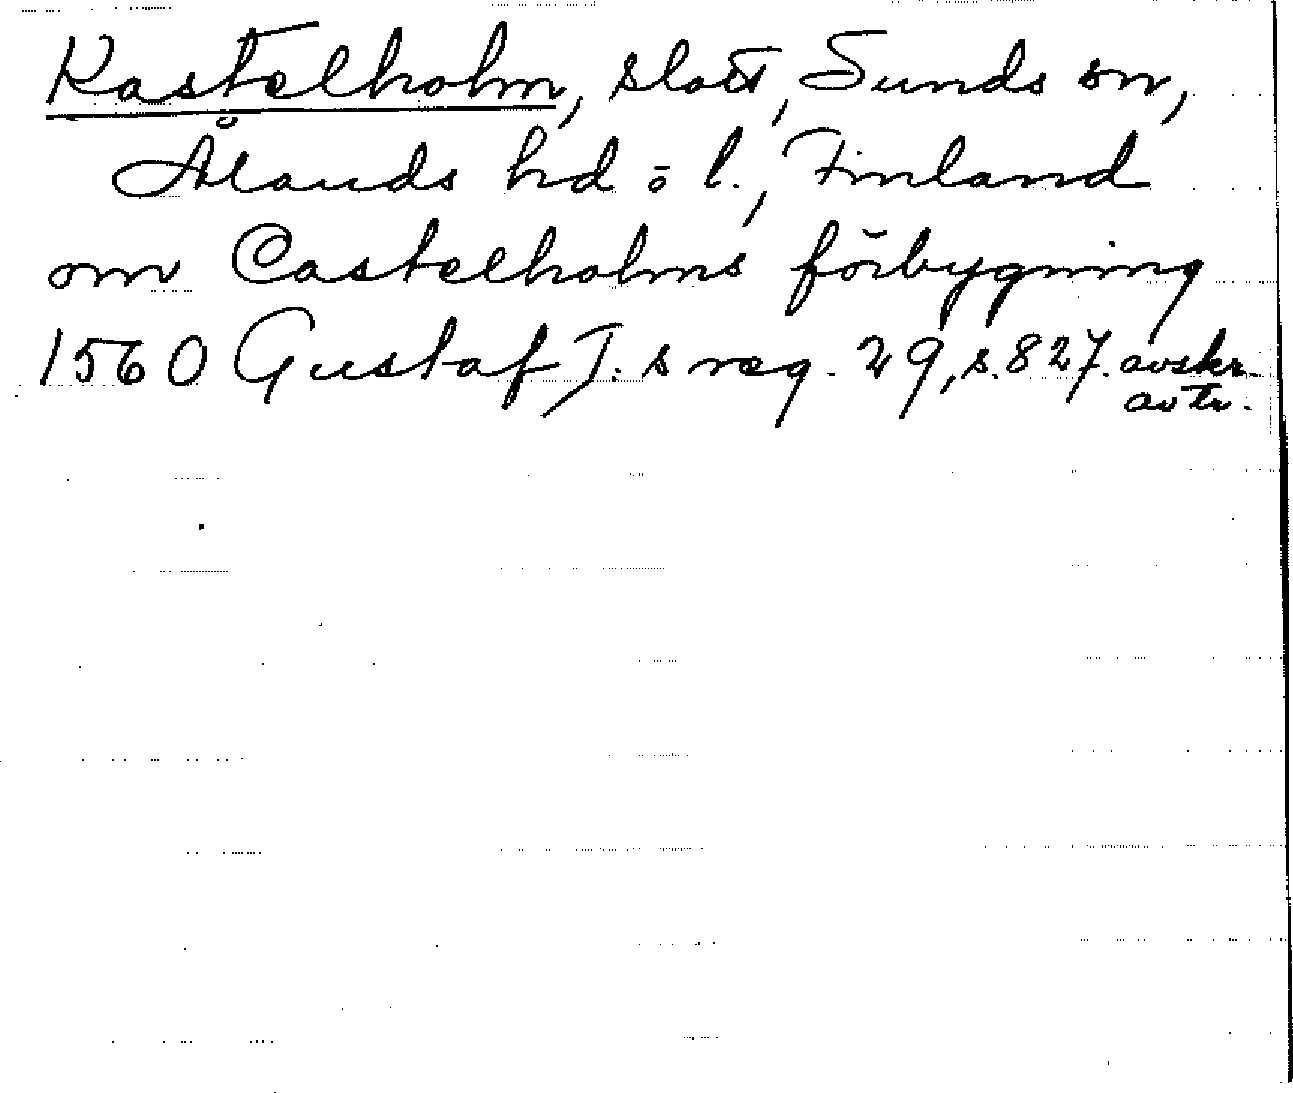 Kastelholm, slott, Sunds sn,
Ålands hd o l., Finland
om Castelholms förbygning
1560 Gustaf I.s reg. 29, s. 827. avskr.
avtr.